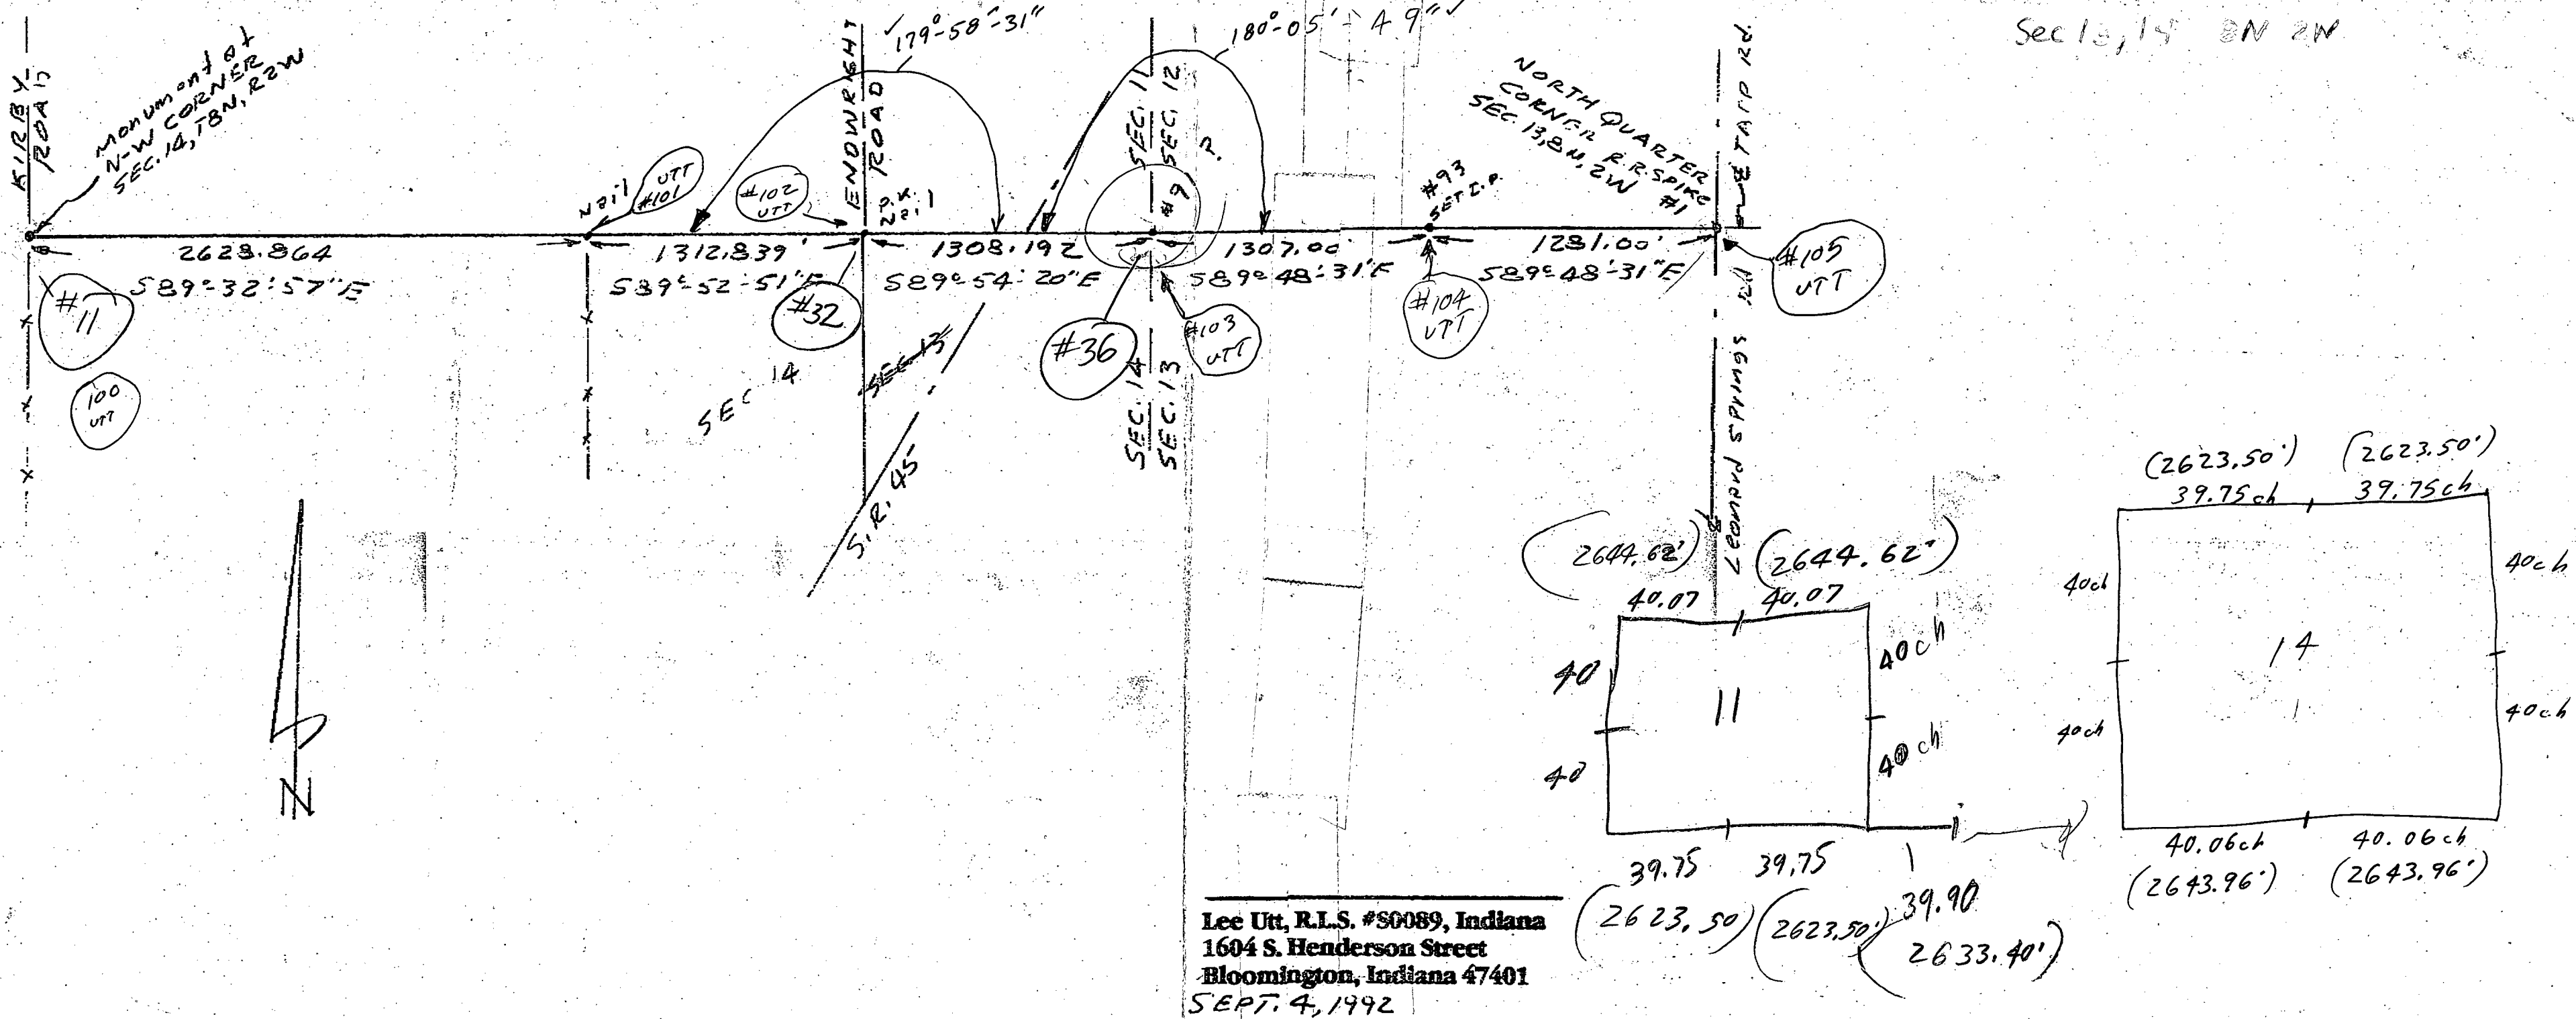 Sec 13, 14 8N 2W
KIRBY
ROAD
monument at
N-W CORNER
SEC. 14, T8N, R2W
179°-58'-31"
180°-05'-49"
ENDWRIGHT
ROAD
SEC. 11
SEC. 12
NORTH QUARTER
CORNER R.R. SPIKE
SEC. 13, 8N, 2W #1
TAPP RD.
Nail
UTT
#101
#102
UTT
P.K.
Nail
#9
?
#93
SET I.P.
2628.864
S89°-32'-57"E
1312.839'
S89°-52'-51"E
1308.192
S89°-54'-20"E
1307.00'
S89°-48'-31"E
1281.00'
S89°-48'-31"E
#11
100
UTT
#32
#36
#103
UTT
#104
UTT
#105
UTT
SEC 14
SEC. 13
S.R. 45
SEC. 14
SEC. 13
LEONARD SPRINGS Rd
N
(2644.62') (2644.62')
40.07 40.07
40
40ch
11
40
40ch
39.75 39.75
39.90
(2623.50) (2623.50')
(2633.40')
(2623.50') (2623.50')
39.75ch 39.75ch
40ch
40ch
14
40ch
40ch
40.06ch 40.06ch
(2643.96') (2643.96')
Lee Utt, R.L.S. #S0089, Indiana
1604 S. Henderson Street
Bloomington, Indiana 47401
SEPT. 4, 1992